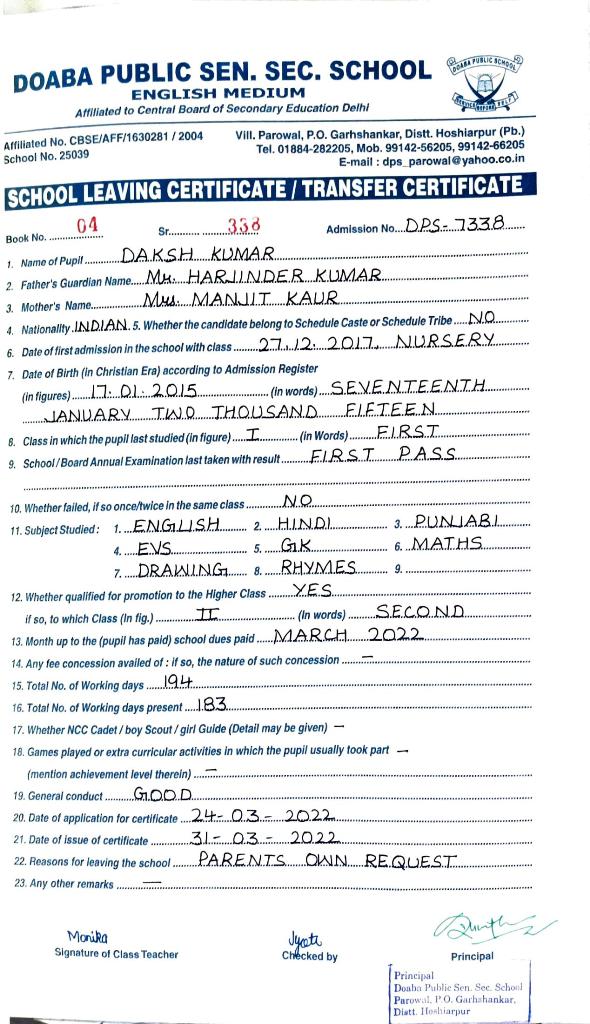 DOABA PUBLIC SEN. SEC. SCHOOL
ENGLISH MEDIUM
Affiliated to Central Board of Secondary Education Delhi
DOABA PUBLIC SCHOOL
Affiliated No. CBSE/AFF/1630281 / 2004
School No. 25039
Vill. Parowal, P.O. Garhshankar, Distt. Hoshiarpur (Pb.)
Tel. 01884-282205, Mob. 99142-56205, 99142-66205
E-mail : dps_parowal@yahoo.co.in
SCHOOL LEAVING CERTIFICATE / TRANSFER CERTIFICATE
Book No. 04 Sr. 338 Admission No. DPS-7338
1. Name of Pupil DAKSH KUMAR
2. Father's Guardian Name Mr. HARJINDER KUMAR
3. Mother's Name Mrs. MANJIT KAUR
4. Nationality INDIAN 5. Whether the candidate belong to Schedule Caste or Schedule Tribe NO
6. Date of first admission in the school with class 27.12.2017, NURSERY
7. Date of Birth (in Christian Era) according to Admission Register
(in figures) 17.01.2015 (in words) SEVENTEENTH
JANUARY TWO THOUSAND FIFTEEN
8. Class in which the pupil last studied (in figure) I (in Words) FIRST
9. School / Board Annual Examination last taken with result FIRST PASS
10. Whether failed, if so once/twice in the same class NO
11. Subject Studied : 1. ENGLISH 2. HINDI 3. PUNJABI
4. EVS 5. GK 6. MATHS
7. DRAWING 8. RHYMES 9.
12. Whether qualified for promotion to the Higher Class YES
if so, to which Class (In fig.) II (In words) SECOND
13. Month up to the (pupil has paid) school dues paid MARCH 2022
14. Any fee concession availed of : if so, the nature of such concession —
15. Total No. of Working days 194
16. Total No. of Working days present 183
17. Whether NCC Cadet / boy Scout / girl Guide (Detail may be given) —
18. Games played or extra curricular activities in which the pupil usually took part —
(mention achievement level therein) —
19. General conduct GOOD
20. Date of application for certificate 24-03-2022
21. Date of issue of certificate 31-03-2022
22. Reasons for leaving the school PARENTS OWN REQUEST
23. Any other remarks —
Monika Jyoti
Signature of Class Teacher Checked by Principal
Principal
Doaba Public Sen. Sec. School
Parowal, P.O. Garhshankar,
Distt. Hoshiarpur